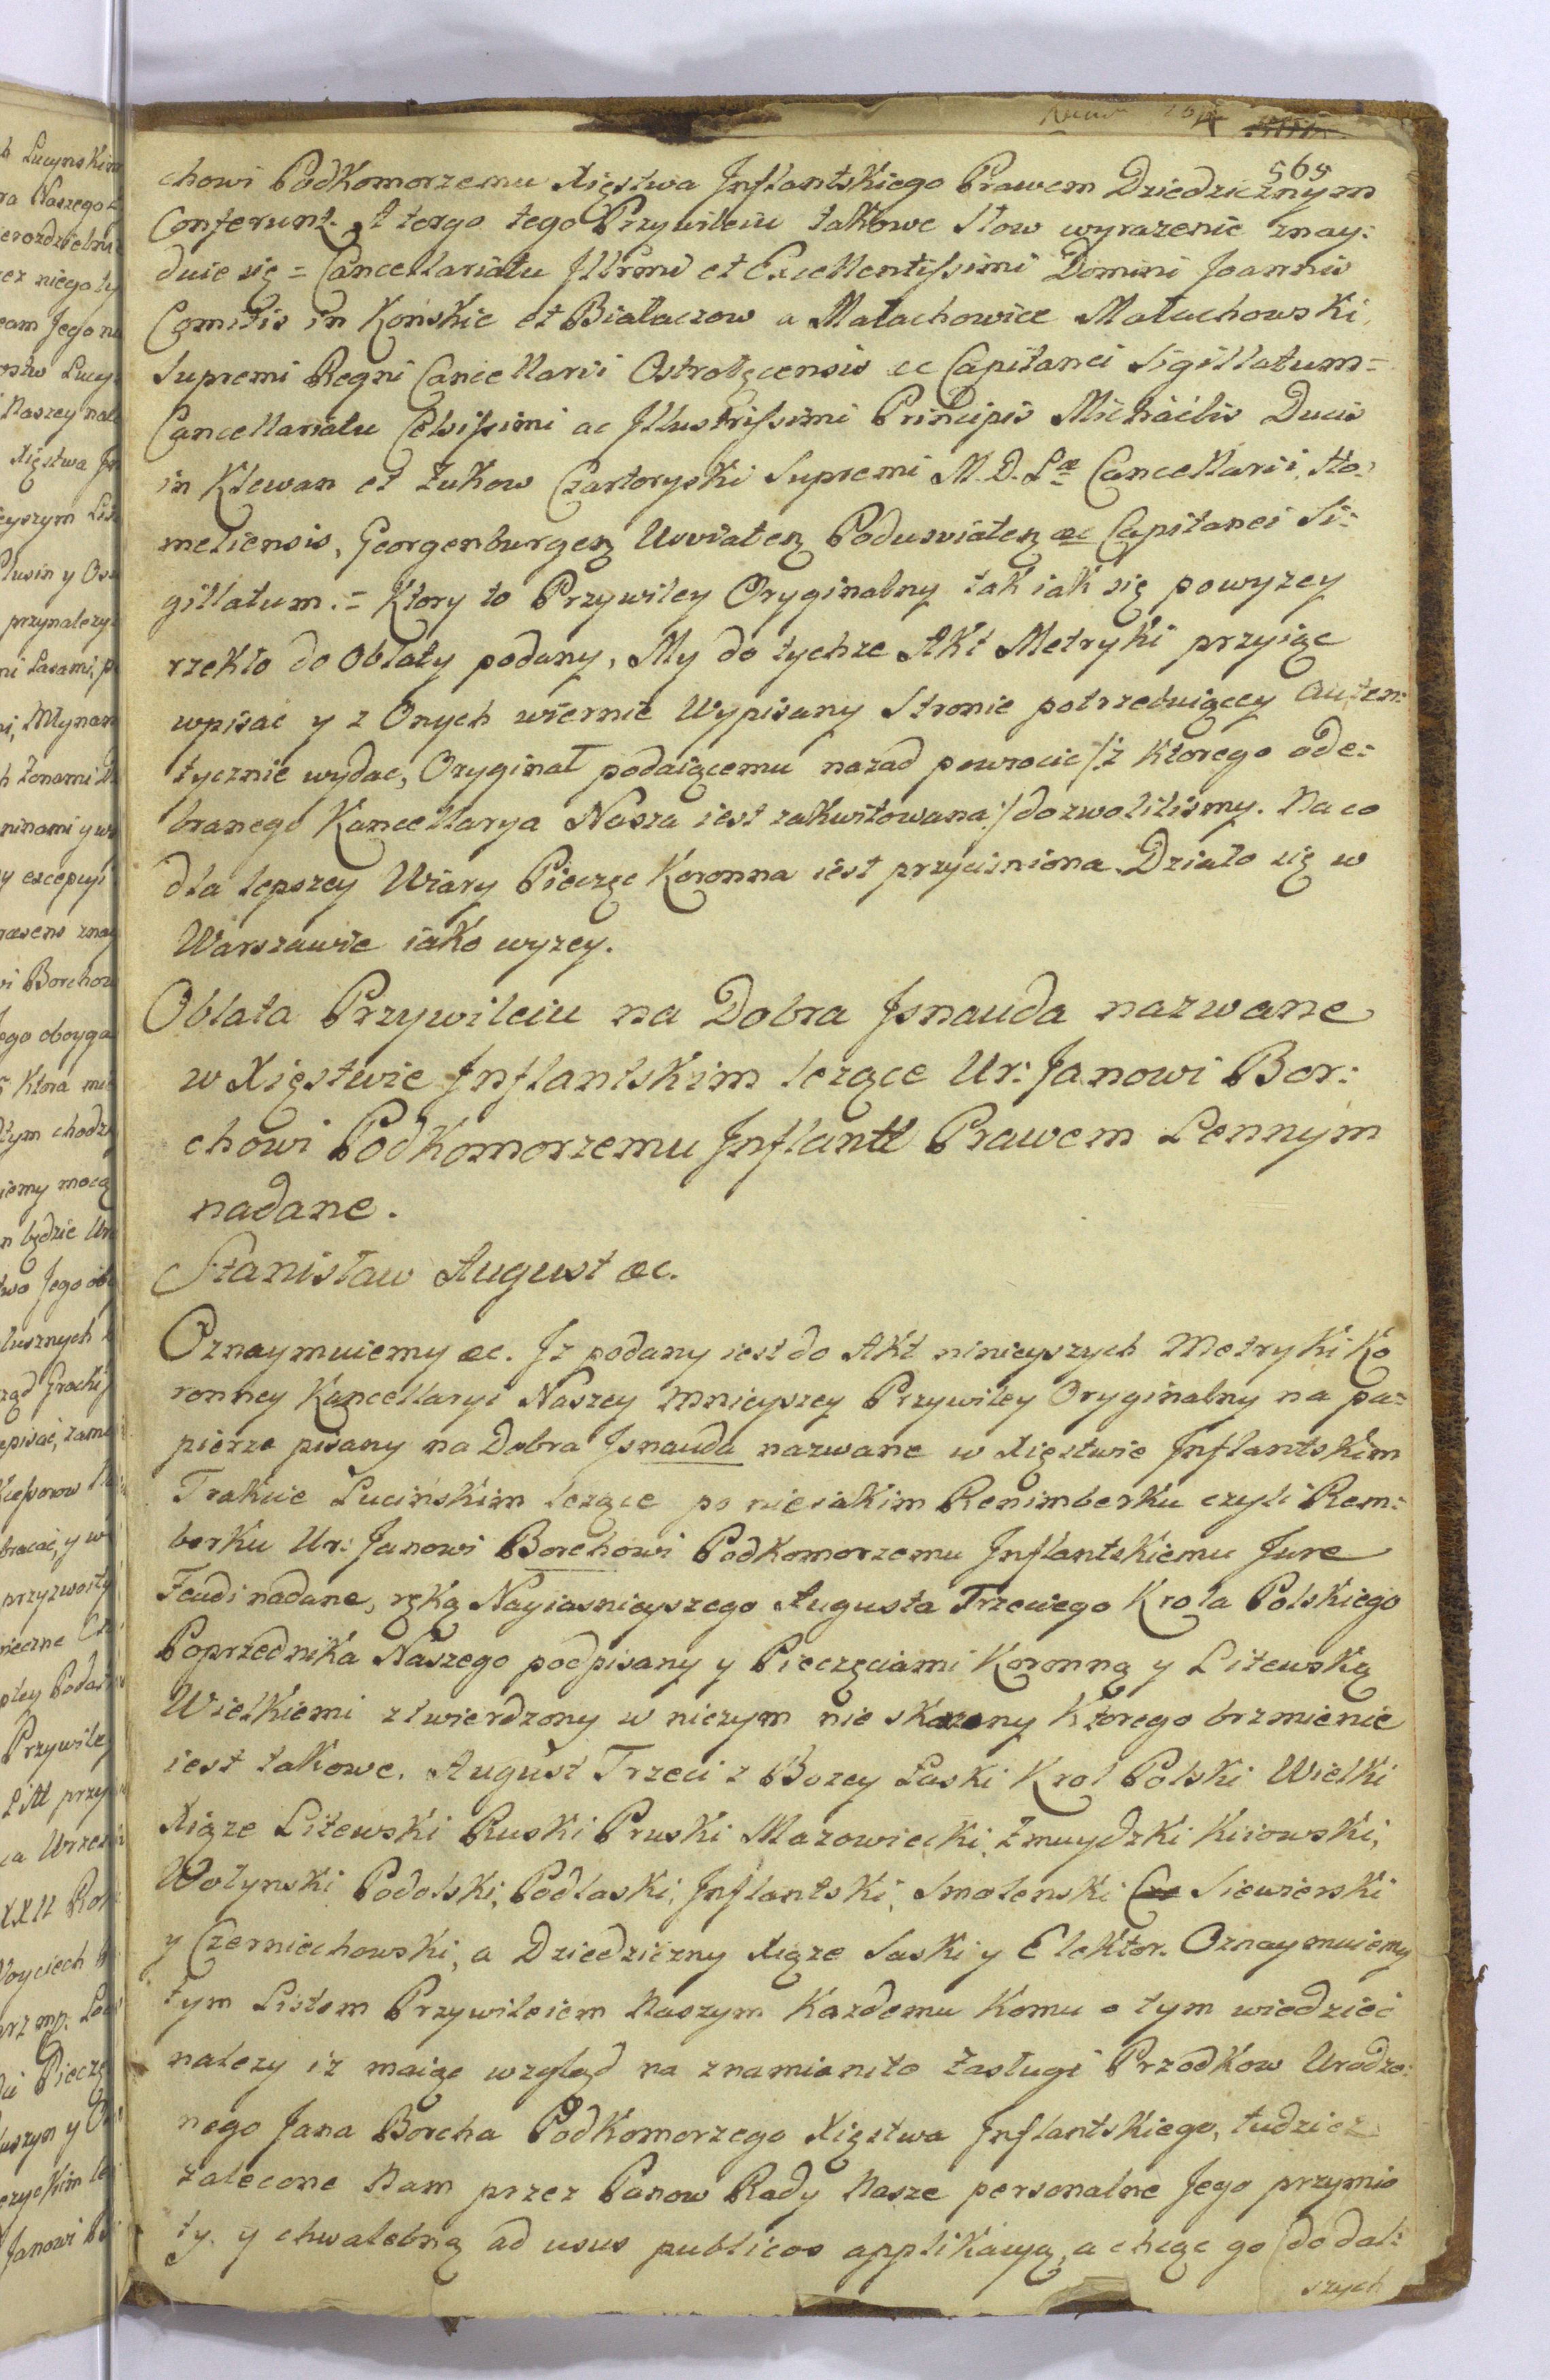 569
chowi Podkomorzemu Xięstwa Inflantskiego Prawem Dziedzicznym
Conferunt. A tergo tego Przywileiu takowe Słow wyrazenie znay:
duie się = Cancellariatu Illrmi et Excellentissimi Domini Joannis
Comitis in Końskie et Białaczow a Małachowice Małachowski
Supremi Regni Cancellarii Ostrołęcensis &c Capitanei Sigillatum =
Cancellariatu Celsissimi ac Illustrissimi Principis Michaelis Ducis
in Klewan et Zukow Czartoryski Supremi M. D. Læ Cancellarii, Ho:
meliensis, Georgenburgen Usviaten Podusviaten &c Capitanei Si:
gillatum. = Ktory to Przywiley Oryginalny tak iak się powyzey
rzekło do Oblaty podany, My do tychze Akt Metryki przyiąc
wpisac y z Onych wiernie Wypisany Stronie potrzebuiącey Auten:
tycznie wydac, Oryginał podaiącemu nazad powrocic /: z ktorego ode:
branego Kancellarya Nasza iest zakwitowana :/ dozwolilismy. Na co
dla lepszey Wiary Pieczęc Koronna iest przycisniona. Działo się w
Warszawie iako wyzey.
Oblata Przywileiu na Dobra Isnauda nazwane
w Xięstwie Inflantskim lezące Ur: Janowi Bor:
chowi Podkomorzemu Inflantt Prawem Lennym
nadane.
Stanisław August &c.
Oznaymuiemy &c. Iz podany iest do Akt ninieyszych Metryki Ko
ronney Kancellaryi Naszey Mnieyszey Przywiley Oryginalny na pa:
pierze pisany na Dobra Isnauda nazwane w Xięstwie Inflantskim
Trakcie Lucińskim lezące po nieiakim Renimberku czyli Rem:
berku Ur: Janowi Borchowi Podkomorzemu Inflantskiemu Jure
Feudi nadane, ręką Nayiasnieyszego Augusta Trzeciego Krola Polskiego
Poprzednika Naszego podpisany y Pieczęciami Koronną y Litewską
Wielkiemi ztwierdzony w niczym nie skazony ktorego brzmienie
iest takowe. August Trzeci z Bozey Łaski Krol Polski Wielki
Xiąze Litewski Ruski Pruski Mazowiecki, Zmuydzki Kiiowski,
Wołynski Podolski, Podlaski, Inflantski, Smolenski Siewierski
y Czerniechowski, a Dziedziczny Xiąze Saski y Elektor. Oznaymuiemy
tym Listem Przywileiem Naszym kazdemu komu o tym wiedzieć
nalezy iz maiąc wzgląd na znamienite Zasługi Przodkow Urodzo:
nego Jana Borcha Podkomorzego Xięstwa Inflantskiego, tudziez
zalecone Nam przez Panow Rady Nasze personalne Jego przymio
ty. y chwalebną ad usus publicos applikacyą, a chcąc go do dal:
szych